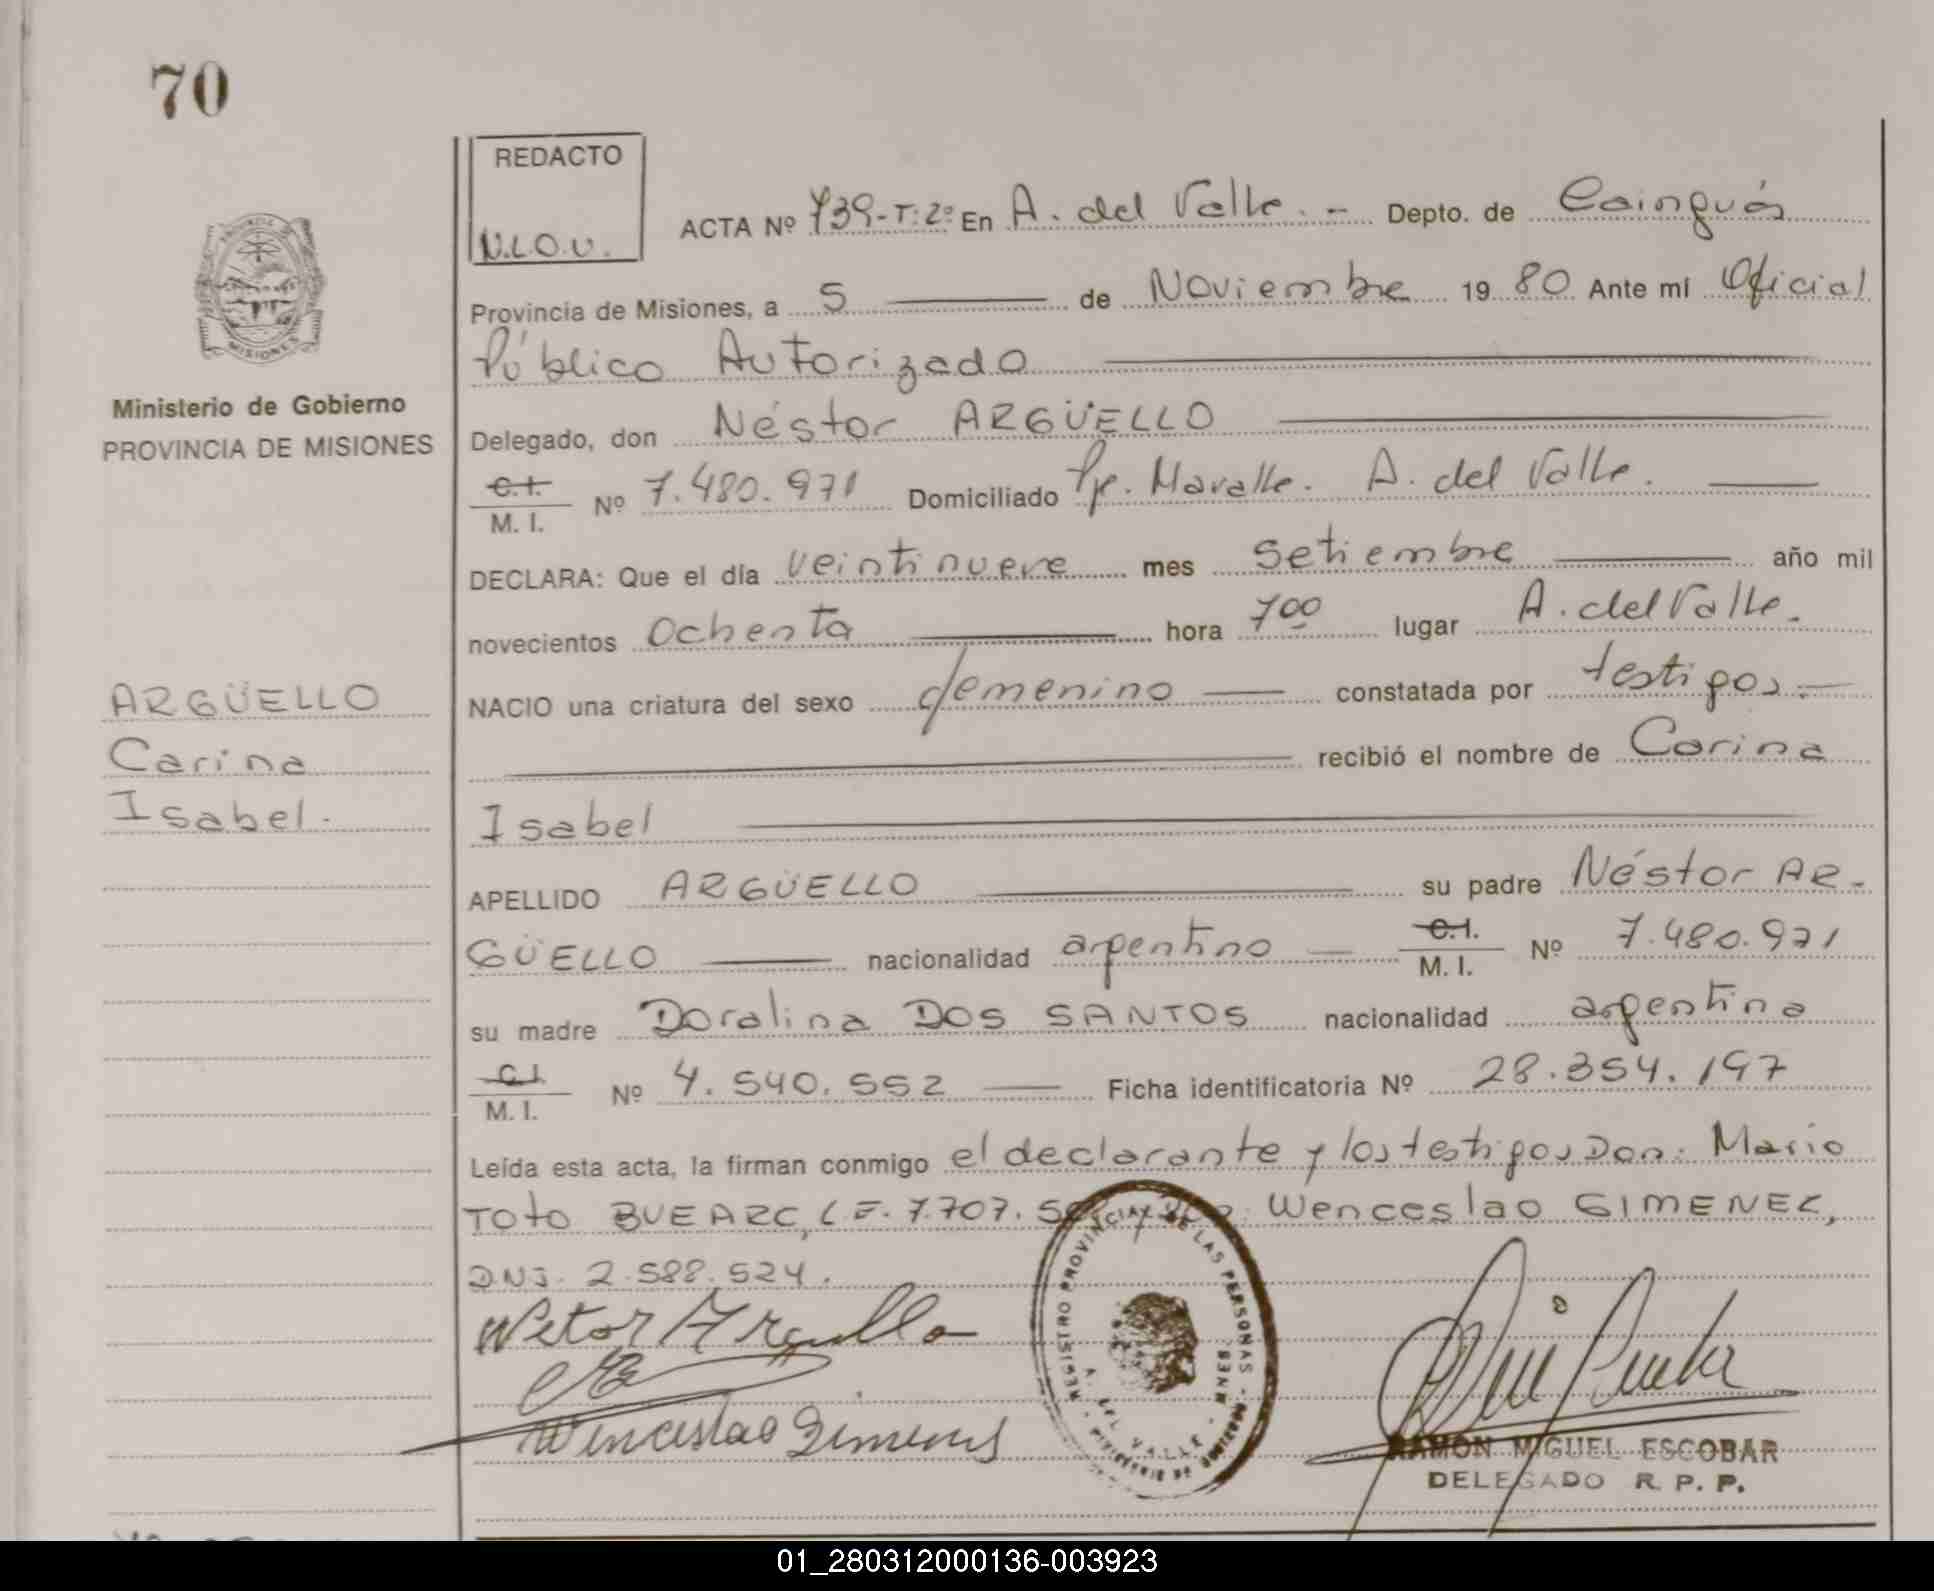 70
REDACTO
N.L.O.V.
ACTA Nº 739-T:2º En A. del Valle.- Depto. de Cainguás
Provincia de Misiones, a 5 de Noviembre 19 80 Ante mi Oficial
Público Autorizado
MISIONES
Ministerio de Gobierno
PROVINCIA DE MISIONES
Delegado, don Néstor ARGÜELLO
C.I.
M. I. Nº 7.480.971 Domiciliado Pje. Maralle. A. del Valle.
DECLARA: Que el día veintinueve mes Setiembre año mil
novecientos Ochenta hora 7 00 lugar A. del Valle.
NACIO una criatura del sexo femenino constatada por testigos.-
recibió el nombre de Carina
Isabel
ARGÜELLO
Carina
Isabel.
APELLIDO ARGÜELLO su padre Néstor AR-
GÜELLO nacionalidad argentino C.I. M. I. Nº 7.480.971
su madre Doralina DOS SANTOS nacionalidad argentina
C.I.
M. I. Nº 4.540.552 Ficha identificatoria Nº 28.354.197
Leída esta acta, la firman conmigo el declarante y los testigos Don: Mario
Toto BUEARC, L.E. 7.707. Wenceslao GIMENEZ,
D.N.I. 2.588.524.
Netor Arguello
Wenceslao Gimenes
REGISTRO PROVINCIAL DE LAS PERSONAS
A. DEL VALLE
RAMON MIGUEL ESCOBAR
DELEGADO R. P. P.
01_280312000136-003923